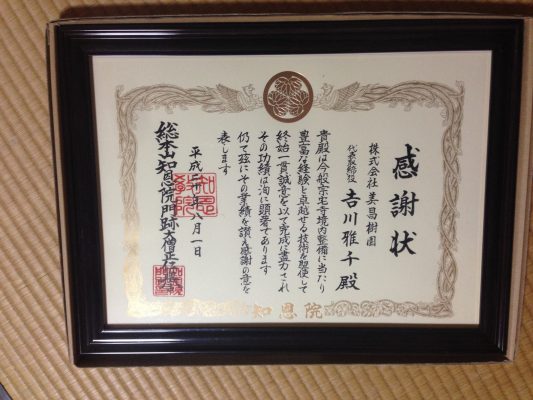 感謝状
株式会社 美昌樹園
代表取締役 吉川雅千殿
貴殿は今般宗宅寺境内整備に当たり
豊富な経験と卓越せる技術を駆使して
終始一貫誠意を以て完成に盡力され
その功績は洵に顕著であります
仍て茲にその業績を讃え感謝の意を
表します
平成二十年八月一日
総本山知恩院門跡大僧正
知恩院